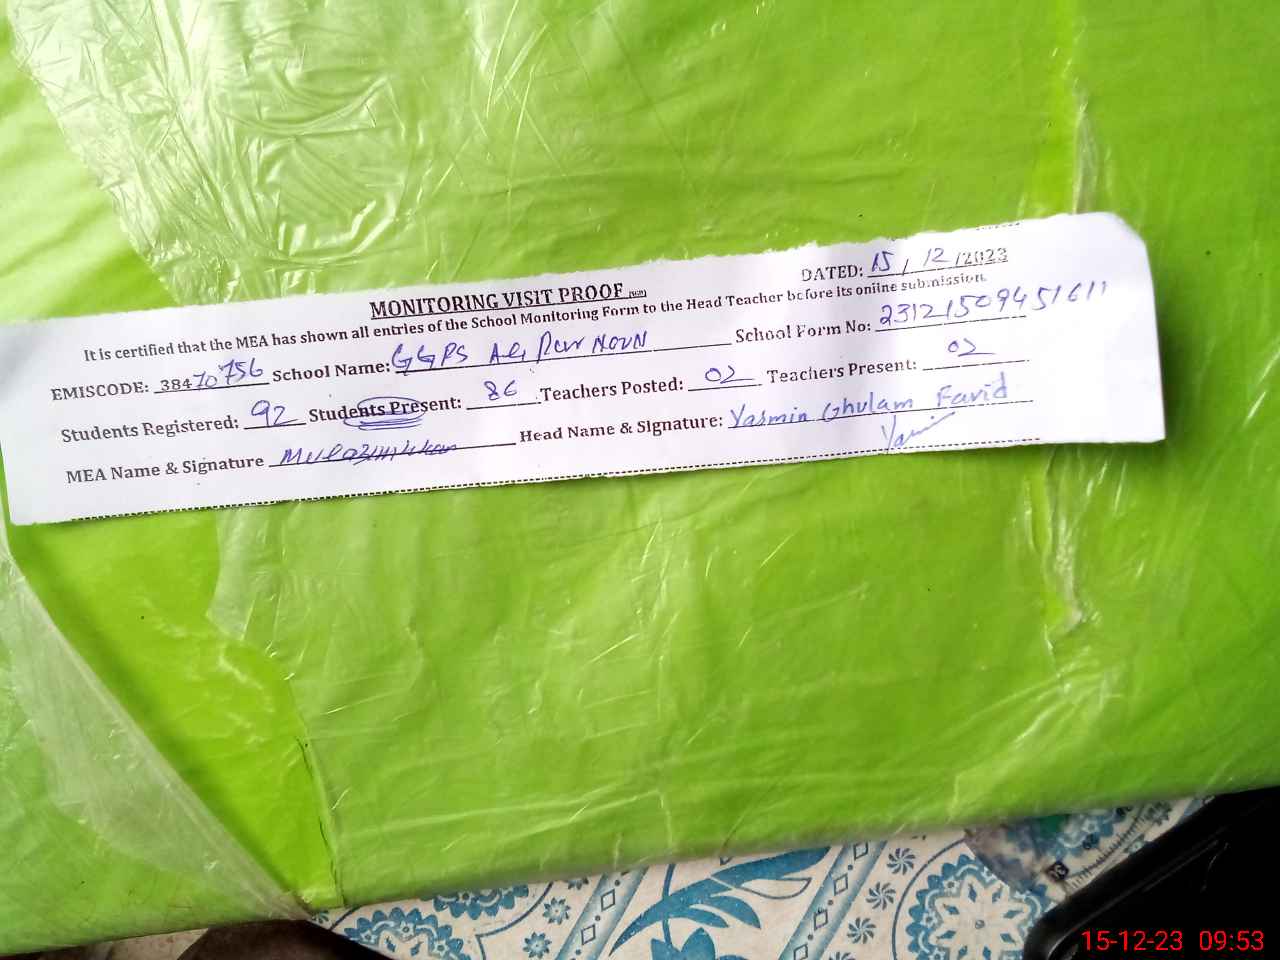 DATED: 15 / 12 /2023
MONITORING VISIT PROOF
It is certified that the MEA has shown all entries of the School Monitoring Form to the Head Teacher before its online submission.
EMISCODE: 38470756 School Name: GGPS School Form No: 23121509451611
Students Registered: 92 Students Present: 86 Teachers Posted: 02 Teachers Present: 02
MEA Name & Signature Head Name & Signature: Yasmin Ghulam Farid
15-12-23 09:53